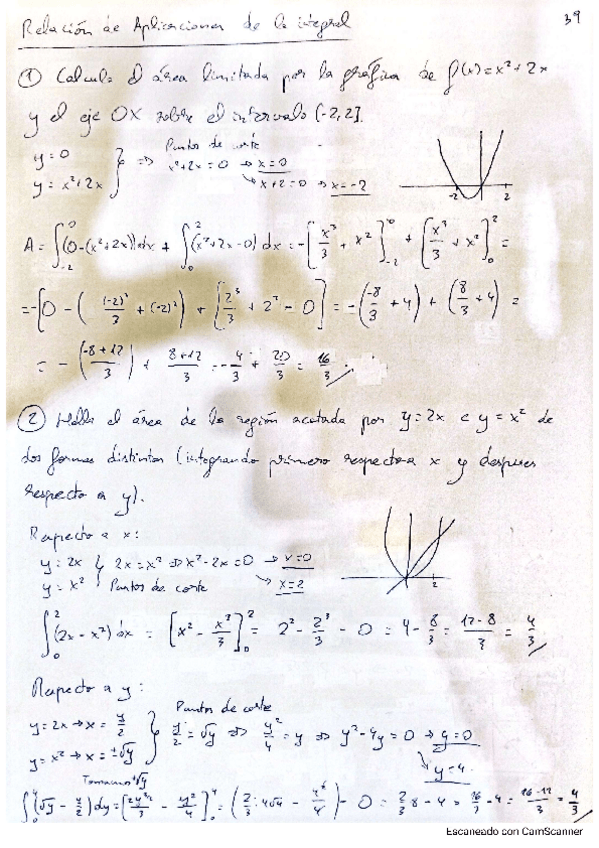 Relación de Aplicaciones de la integral
39
① Calcula el área limitada por la gráfica de f(x)=x²+2x
y el eje OX sobre el intervalo [-2,2].
y=0
y=x²+2x } ⇒ Puntos de corte
x²+2x=0 → x=0
→ x+2=0 → x=-2
-2 2
A = ∫₋₂⁰ (0-(x²+2x))dx + ∫₀² (x²+2x-0)dx = -[x³/3 + x²]₋₂⁰ + [x³/3 + x²]₀² =
= -[0 - ((-2)³/3 + (-2)²)] + [2³/3 + 2² - 0] = -(-8/3 + 4) + (8/3 + 4) =
= -(-8+12/3) + 8+12/3 = -4/3 + 20/3 = 16/3
② Halla el área de la región acotada por y=2x e y=x² de
dos formas distintas (integrando primero respecto a x y despues
respecto a y).
Respecto a x:
y=2x } 2x=x² ⇒ x²-2x=0 → x=0
y=x² Puntos de corte → x=2
2
∫₀² (2x-x²)dx = [x² - x³/3]₀² = 2² - 2³/3 - 0 = 4 - 8/3 = 12-8/3 = 4/3
Respecto a y:
Puntos de corte
y=2x → x=y/2
y=x² → x=±√y } y/2=√y ⇒ y²/4=y ⇒ y²-4y=0 → y=0
→ y=4
Tomamos +√y
∫₀⁴ (√y - y/2)dy = [2y^(3/2)/3 - y²/4]₀⁴ = (2/3·4√4 - 4²/4) - 0 = 2/3 8 - 4 = 16/3 - 4 = 16-12/3 = 4/3
Escaneado con CamScanner